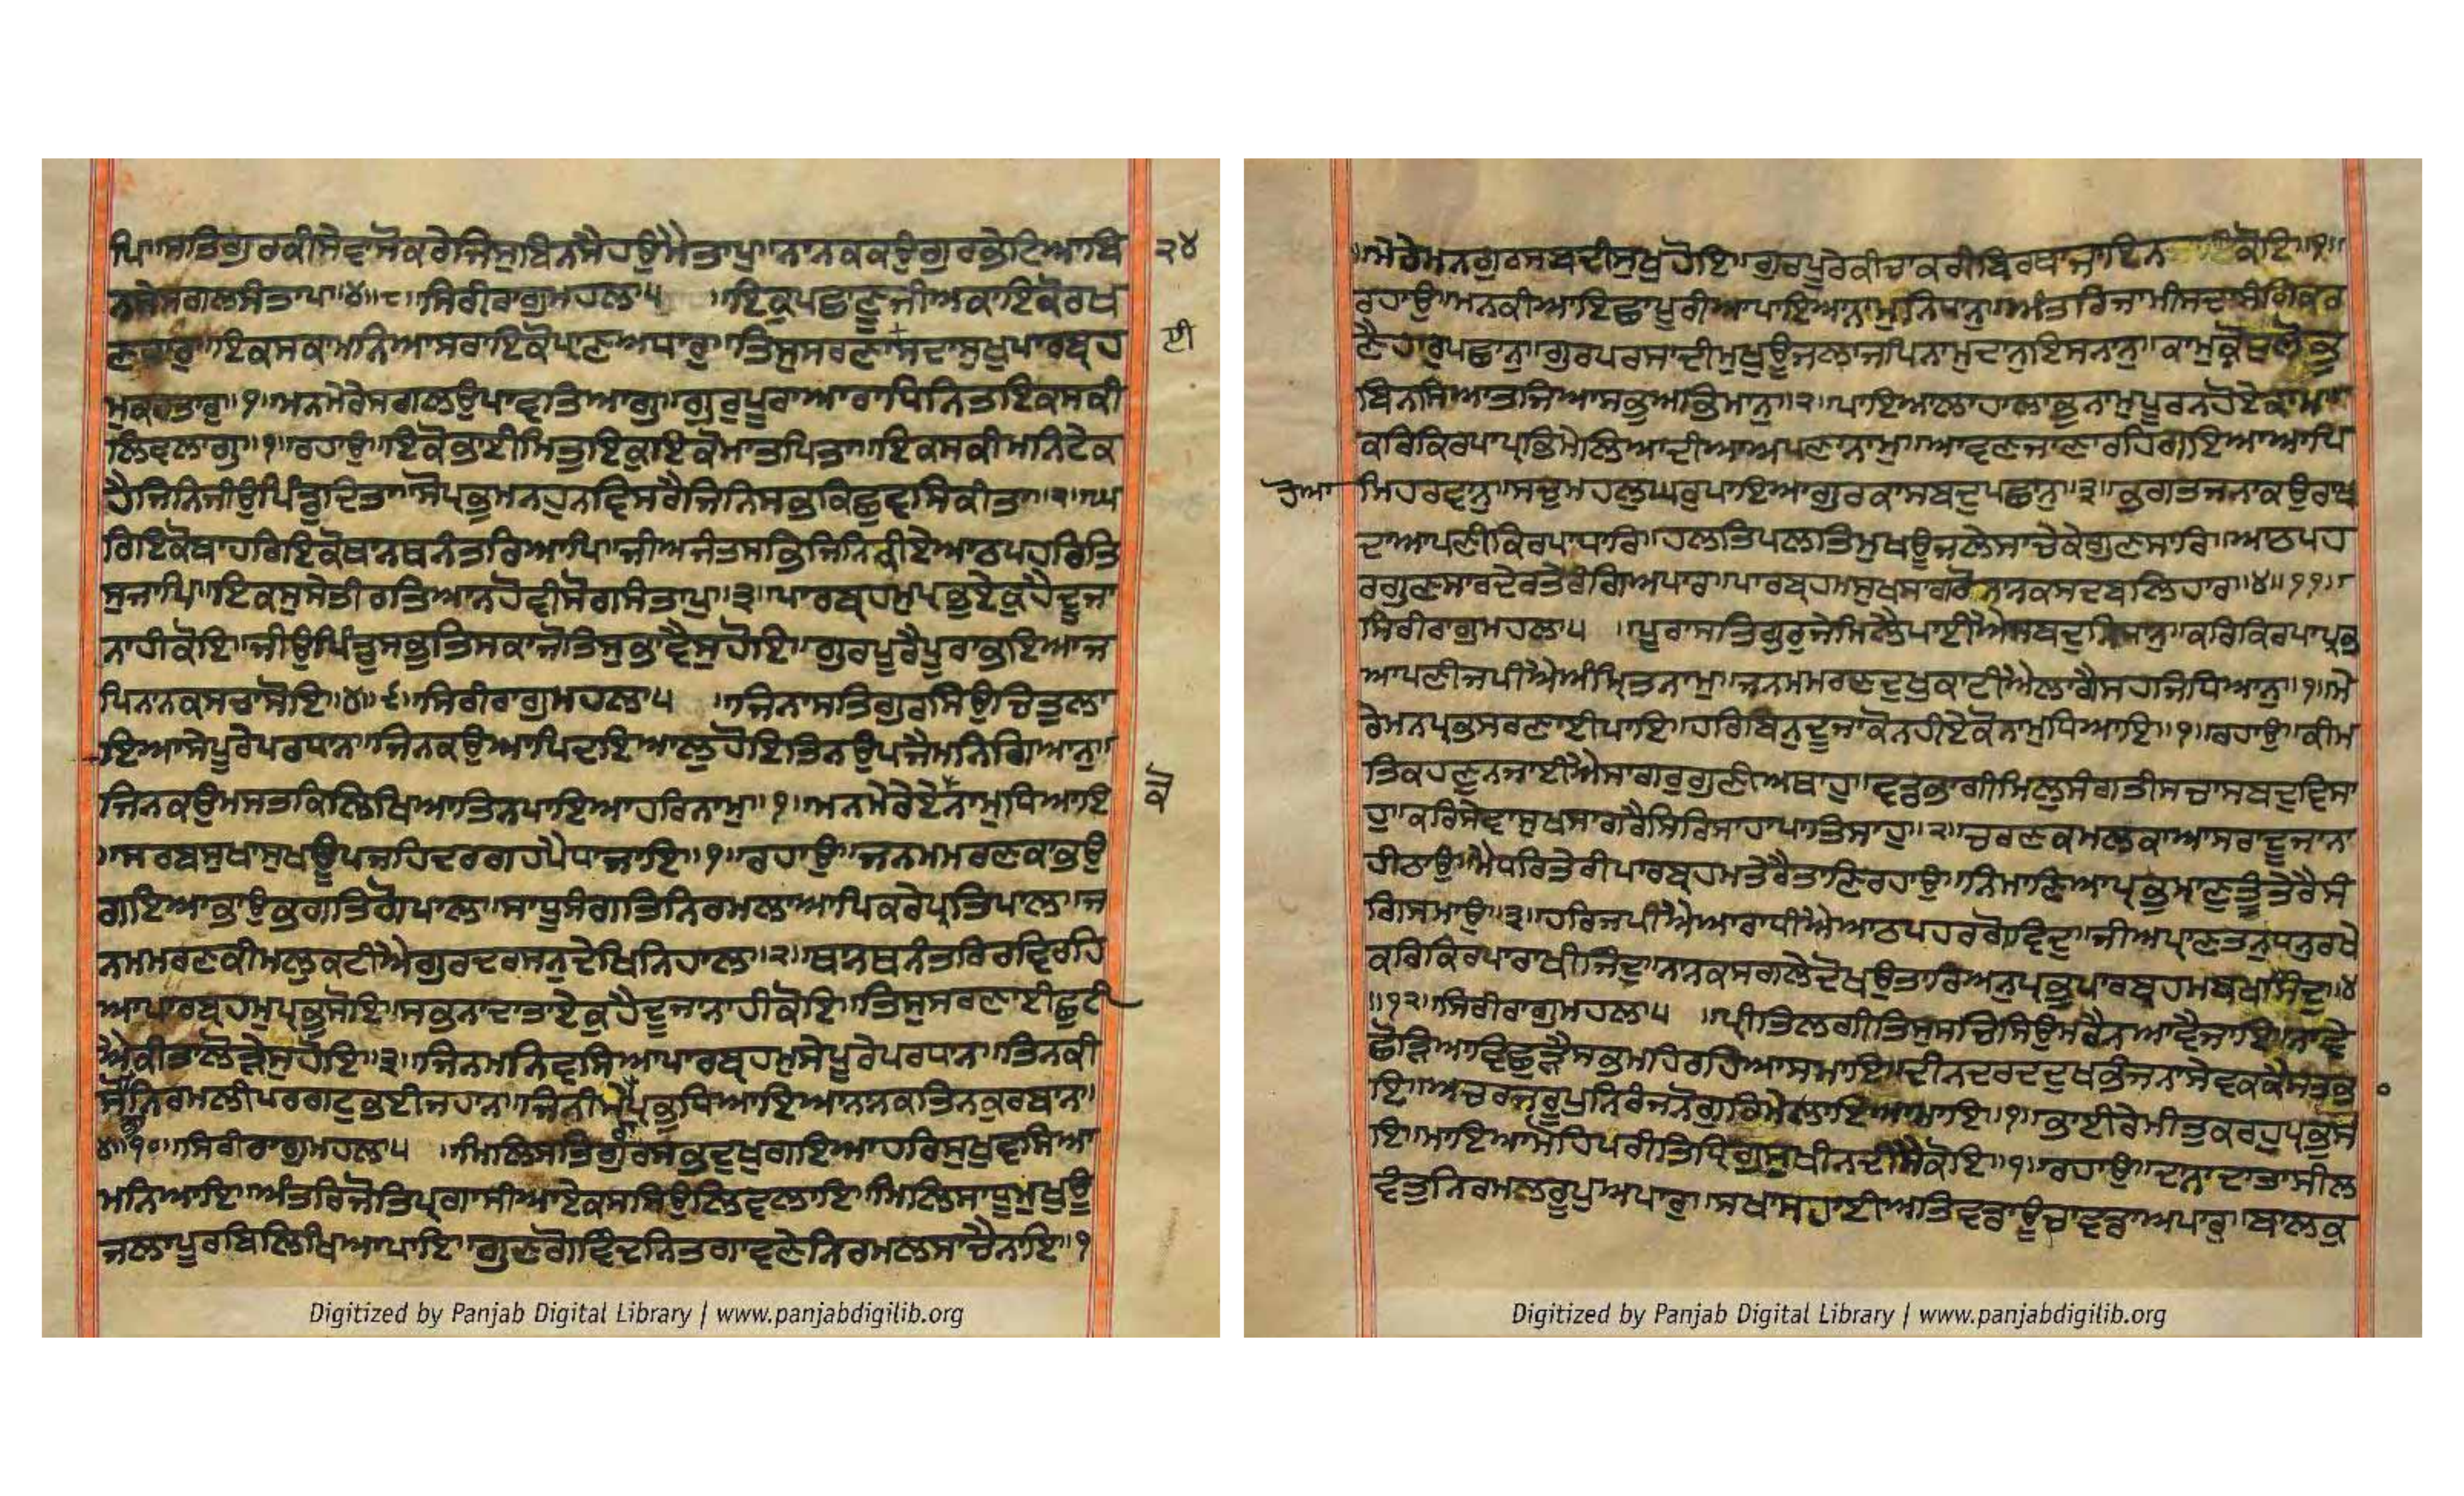 ਪਿ॥ਸਤਿਗੁਰਕੀਸੇਵਾਸੋਕਰੇਜਿਸੁਬਿਨਸੈਹਉਮੈਤਾਪੁ॥ਨਾਨਕਕਉਗੁਰੁਭੇਟਿਆਬਿ
੨੪
ਨਸੇਸਗਲਸੰਤਾਪ॥੪॥੮॥ਸਿਰੀਰਾਗੁਮਹਲਾ੫ ॥ਇਕੁਪਛਾਣੂਜੀਅਕਾਇਕੋਰਖ
ਣਹਾਰੁ॥ਇਕਸਕਾਮਨਿਆਸਰਾਇਕੋਪ੍ਰਾਣਅਧਾਰੁ॥ਤਿਸੁਸਰਣਾਸਦਾਸੁਖੁਪਾਰਬ੍ਰਹ
ਈ
ਮੁਕਰਤਾਰੁ॥੧॥ਮਨਮੇਰੇਸਗਲਉਪਾਵਤਿਆਗੁ॥ਗੁਰੁਪੂਰਾਆਰਾਧਿਨਿਤਇਕਸਕੀ
ਲਿਵਲਾਗੁ॥੧॥ਰਹਾਉ॥ਇਕੋਭਾਈਮਿਤੁਇਕੁਇਕੋਮਾਤਪਿਤਾ॥ਇਕਸਕੀਮਨਿਟੇਕ
ਹੈਜਿਨਿਜੀਉਪਿੰਡੁਦਿਤਾ॥ਸੋਪ੍ਰਭੁਮਨਹੁਨਵਿਸਰੈਜਿਨਿਸਭੁਕਿਛੁਵਸਿਕੀਤਾ॥੨॥ਘ
ਰਿਇਕੋਬਾਹਰਿਇਕੋਥਾਨਥਨੰਤਰਿਆਪਿ॥ਜੀਅਜੰਤਸਭਿਜਿਨਿਕੀਏਆਠਪਹਰਿਤਿ
ਸੁਜਾਪਿ॥ਇਕਸੁਸੇਤੀਰਤਿਆਨਹੋਵੀਸੋਗਸੰਤਾਪੁ॥੩॥ਪਾਰਬ੍ਰਹਮੁਪ੍ਰਭੁਏਕੁਹੈਦੂਜਾ
ਨਾਹੀਕੋਇ॥ਜੀਉਪਿੰਡੁਸਭੁਤਿਸਕਾਜੋਤਿਸੁਭਾਵੈਸੁਹੋਇ॥ਗੁਰਪੂਰੈਪੂਰਾਭਇਆਜ
ਪਿਨਾਨਕਸਚਾਸੋਇ॥੪॥੯॥ਸਿਰੀਰਾਗੁਮਹਲਾ੫ ॥ਜਿਨਾਸਤਿਗੁਰਸਿਉਚਿਤੁਲਾ
ਇਆਸੇਪੂਰੇਪਰਧਾਨ॥ਜਿਨਕਉਆਪਿਦਇਆਲੁਹੋਇਤਿਨਉਪਜੈਮਨਿਗਿਆਨੁ॥
ਜਿਨਕਉਮਸਤਕਿਲਿਖਿਆਤਿਨਪਾਇਆਹਰਿਨਾਮੁ॥੧॥ਮਨਮੇਰੇਏਨਾਮੁਧਿਆਇ
ਕੋ
॥ਸਰਬਸੁਖਾਸੁਖਊਪਜਹਿਦਰਗਹਪੈਧਾਜਾਇ॥੧॥ਰਹਾਉ॥ਜਨਮਮਰਣਕਾਭਉ
ਗਇਆਭਾਉਭਗਤਿਗੋਪਾਲ॥ਸਾਧੂਸੰਗਤਿਨਿਰਮਲਾਆਪਿਕਰੇਪ੍ਰਤਿਪਾਲ॥ਜ
ਨਮਮਰਣਕੀਮਲੁਕਟੀਐਗੁਰਦਰਸਨੁਦੇਖਿਨਿਹਾਲ॥੨॥ਥਾਨਥਨੰਤਰਿਰਵਿਰਹਿ
ਆਪਾਰਬ੍ਰਹਮੁਪ੍ਰਭੁਸੋਇ॥ਸਭਨਾਦਾਤਾਏਕੁਹੈਦੂਜਾਨਾਹੀਕੋਇ॥ਤਿਸੁਸਰਣਾਈਛੁਟੀ
ਐਕੀਤਾਲੋੜੇਸੁਹੋਇ॥੩॥ਜਿਨਮਨਿਵਸਿਆਪਾਰਬ੍ਰਹਮੁਸੇਪੂਰੇਪਰਧਾਨ॥ਤਿਨਕੀ
ਸੋਭਾਨਿਰਮਲੀਪਰਗਟੁਭਈਜਹਾਨ॥ਜਿਨੀਮੇਰਾਪ੍ਰਭੁਧਿਆਇਆਨਾਨਕਤਿਨਕੁਰਬਾਨ॥
੪॥੧੦॥ਸਿਰੀਰਾਗੁਮਹਲਾ੫ ॥ਮਿਲਿਸਤਿਗੁਰਸਭੁਦੁਖੁਗਇਆਹਰਿਸੁਖੁਵਸਿਆ
ਮਨਿਆਇ॥ਅੰਤਰਿਜੋਤਿਪ੍ਰਗਾਸੀਆਏਕਸਸਿਉਲਿਵਲਾਇ॥ਮਿਲਿਸਾਧੂਮੁਖੁਊ
ਜਲਾਪੂਰਬਿਲਿਖਿਆਪਾਇ॥ਗੁਣਗੋਵਿੰਦਨਿਤਗਾਵਣੇਨਿਰਮਲਸਾਚੈਨਾਇ॥੧
Digitized by Panjab Digital Library | www.panjabdigilib.org
॥ਮੇਰੇਮਨਗੁਰਸਬਦੀਸੁਖੁਹੋਇ॥ਗੁਰਪੂਰੇਕੀਚਾਕਰੀਬਿਰਥਾਜਾਇਨ ਕੋਇ॥੧॥
ਰਹਾਉ॥ਮਨਕੀਆਇਛਾਪੂਰੀਆਪਾਇਆਨਾਮੁਨਿਧਾਨੁ॥ਅੰਤਰਿਜਾਮੀਸਦਾਸੰਗਿਕਰ
ਣੈਹਾਰੁਪਛਾਨੁ॥ਗੁਰਪਰਸਾਦੀਮੁਖੁਊਜਲਾਜਪਿਨਾਮੁਦਾਨੁਇਸਨਾਨੁ॥ਕਾਮੁਕ੍ਰੋਧੁਲੋਭੁ
ਬਿਨਸਿਆਤਜਿਆਸਭੁਅਭਿਮਾਨੁ॥੨॥ਪਾਇਆਲਾਹਾਲਾਭੁਨਾਮੁਪੂਰਨਹੋਏਕਾਮ॥
ਕਰਿਕਿਰਪਾਪ੍ਰਭਿਮੇਲਿਆਦੀਆਅਪਣਾਨਾਮੁ॥ਆਵਣਜਾਣਾਰਹਿਗਇਆਆਪਿ
ਹੋਆ
ਮਿਹਰਵਾਨੁ॥ਸਚੁਮਹਲੁਘਰੁਪਾਇਆਗੁਰਕਾਸਬਦੁਪਛਾਨੁ॥੩॥ਭਗਤਜਨਾਕਉਰਾਖ
ਦਾਆਪਣੀਕਿਰਪਾਧਾਰਿ॥ਹਲਤਿਪਲਤਿਮੁਖਊਜਲੇਸਾਚੇਕੇਗੁਣਸਾਰਿ॥ਆਠਪਹ
ਰਗੁਣਸਾਰਦੇਰਤੇਰੰਗਿਅਪਾਰ॥ਪਾਰਬ੍ਰਹਮੁਸੁਖਸਾਗਰੋਨਾਨਕਸਦਬਲਿਹਾਰ॥੪॥੧੧॥
ਸਿਰੀਰਾਗੁਮਹਲਾ੫ ॥ਪੂਰਾਸਤਿਗੁਰੁਜੇਮਿਲੈਪਾਈਐਸਬਦੁਨਿਧਾਨੁ॥ਕਰਿਕਿਰਪਾਪ੍ਰਭ
ਆਪਣੀਜਪੀਐਅੰਮ੍ਰਿਤਨਾਮੁ॥ਜਨਮਮਰਣਦੁਖੁਕਾਟੀਐਲਾਗੈਸਹਜਿਧਿਆਨੁ॥੧॥ਮੇ
ਰੇਮਨਪ੍ਰਭਸਰਣਾਈਪਾਇ॥ਹਰਿਬਿਨੁਦੂਜਾਕੋਨਹੀਏਕੋਨਾਮੁਧਿਆਇ॥੧॥ਰਹਾਉ॥ਕੀਮ
ਤਿਕਹਣੁਨਜਾਈਐਸਾਗਰੁਗੁਣੀਅਥਾਹੁ॥ਵਡਭਾਗੀਮਿਲੁਸੰਗਤੀਸਚਾਸਬਦੁਵਿਸਾ
ਹੁ॥ਕਰਿਸੇਵਾਸੁਖਸਾਗਰੈਸਿਰਿਸਾਹਾਪਾਤਿਸਾਹੁ॥੨॥ਚਰਣਕਮਲਕਾਆਸਰਾਦੂਜਾਨਾ
ਹੀਠਾਉ॥ਮੈਧਰਤੇਰੀਪਾਰਬ੍ਰਹਮਤੇਰੈਤਾਣਿਰਹਾਉ॥ਨਿਮਾਣਿਆਪ੍ਰਭੁਮਾਣੁਤੂੰਤੇਰੈਸੰ
ਗਿਸਮਾਉ॥੩॥ਹਰਿਜਪੀਐਆਰਾਧੀਐਆਠਪਹਰਗੋਵਿੰਦੁ॥ਜੀਅਪ੍ਰਾਣਤਨੁਧਨੁਰਖੇ
ਕਰਿਕਿਰਪਾਰਾਖੀਜਿੰਦੁ॥ਨਾਨਕਸਗਲੇਦੋਖਉਤਾਰਿਅਨੁਪ੍ਰਭੁਪਾਰਬ੍ਰਹਮਬਖਸਿੰਦੁ॥੪
॥੧੨॥ਸਿਰੀਰਾਗੁਮਹਲਾ੫ ॥ਪ੍ਰੀਤਿਲਗੀਤਿਸੁਸਚਸਿਉਮਰੈਨਆਵੈਜਾਇ॥ਨਾਵੇ
ਛੋੜਿਆਵਿਛੁੜੈਸਭਮਹਿਰਹਿਆਸਮਾਇ॥ਦੀਨਦਰਦਦੁਖਭੰਜਨਾਸੇਵਕਕੈਸਤਭਾ
ਇ॥ਅਚਰਜਰੂਪੁਨਿਰੰਜਨੋਗੁਰਿਮੇਲਾਇਆਮਾਇ॥੧॥ਭਾਈਰੇਮੀਤੁਕਰਹੁਪ੍ਰਭੁਸੋ
ਇ॥ਮਾਇਆਮੋਹਪਰੀਤਿਧ੍ਰਿਗੁਸੁਖੀਨਦੀਸੈਕੋਇ॥੧॥ਰਹਾਉ॥ਦਾਨਾਦਾਤਾਸੀਲ
ਵੰਤੁਨਿਰਮਲਰੂਪੁਅਪਾਰੁ॥ਸਖਾਸਹਾਈਅਤਿਵਡਾਊਚਾਵਡਾਅਪਾਰੁ॥ਬਾਲਕੁ
Digitized by Panjab Digital Library | www.panjabdigilib.org